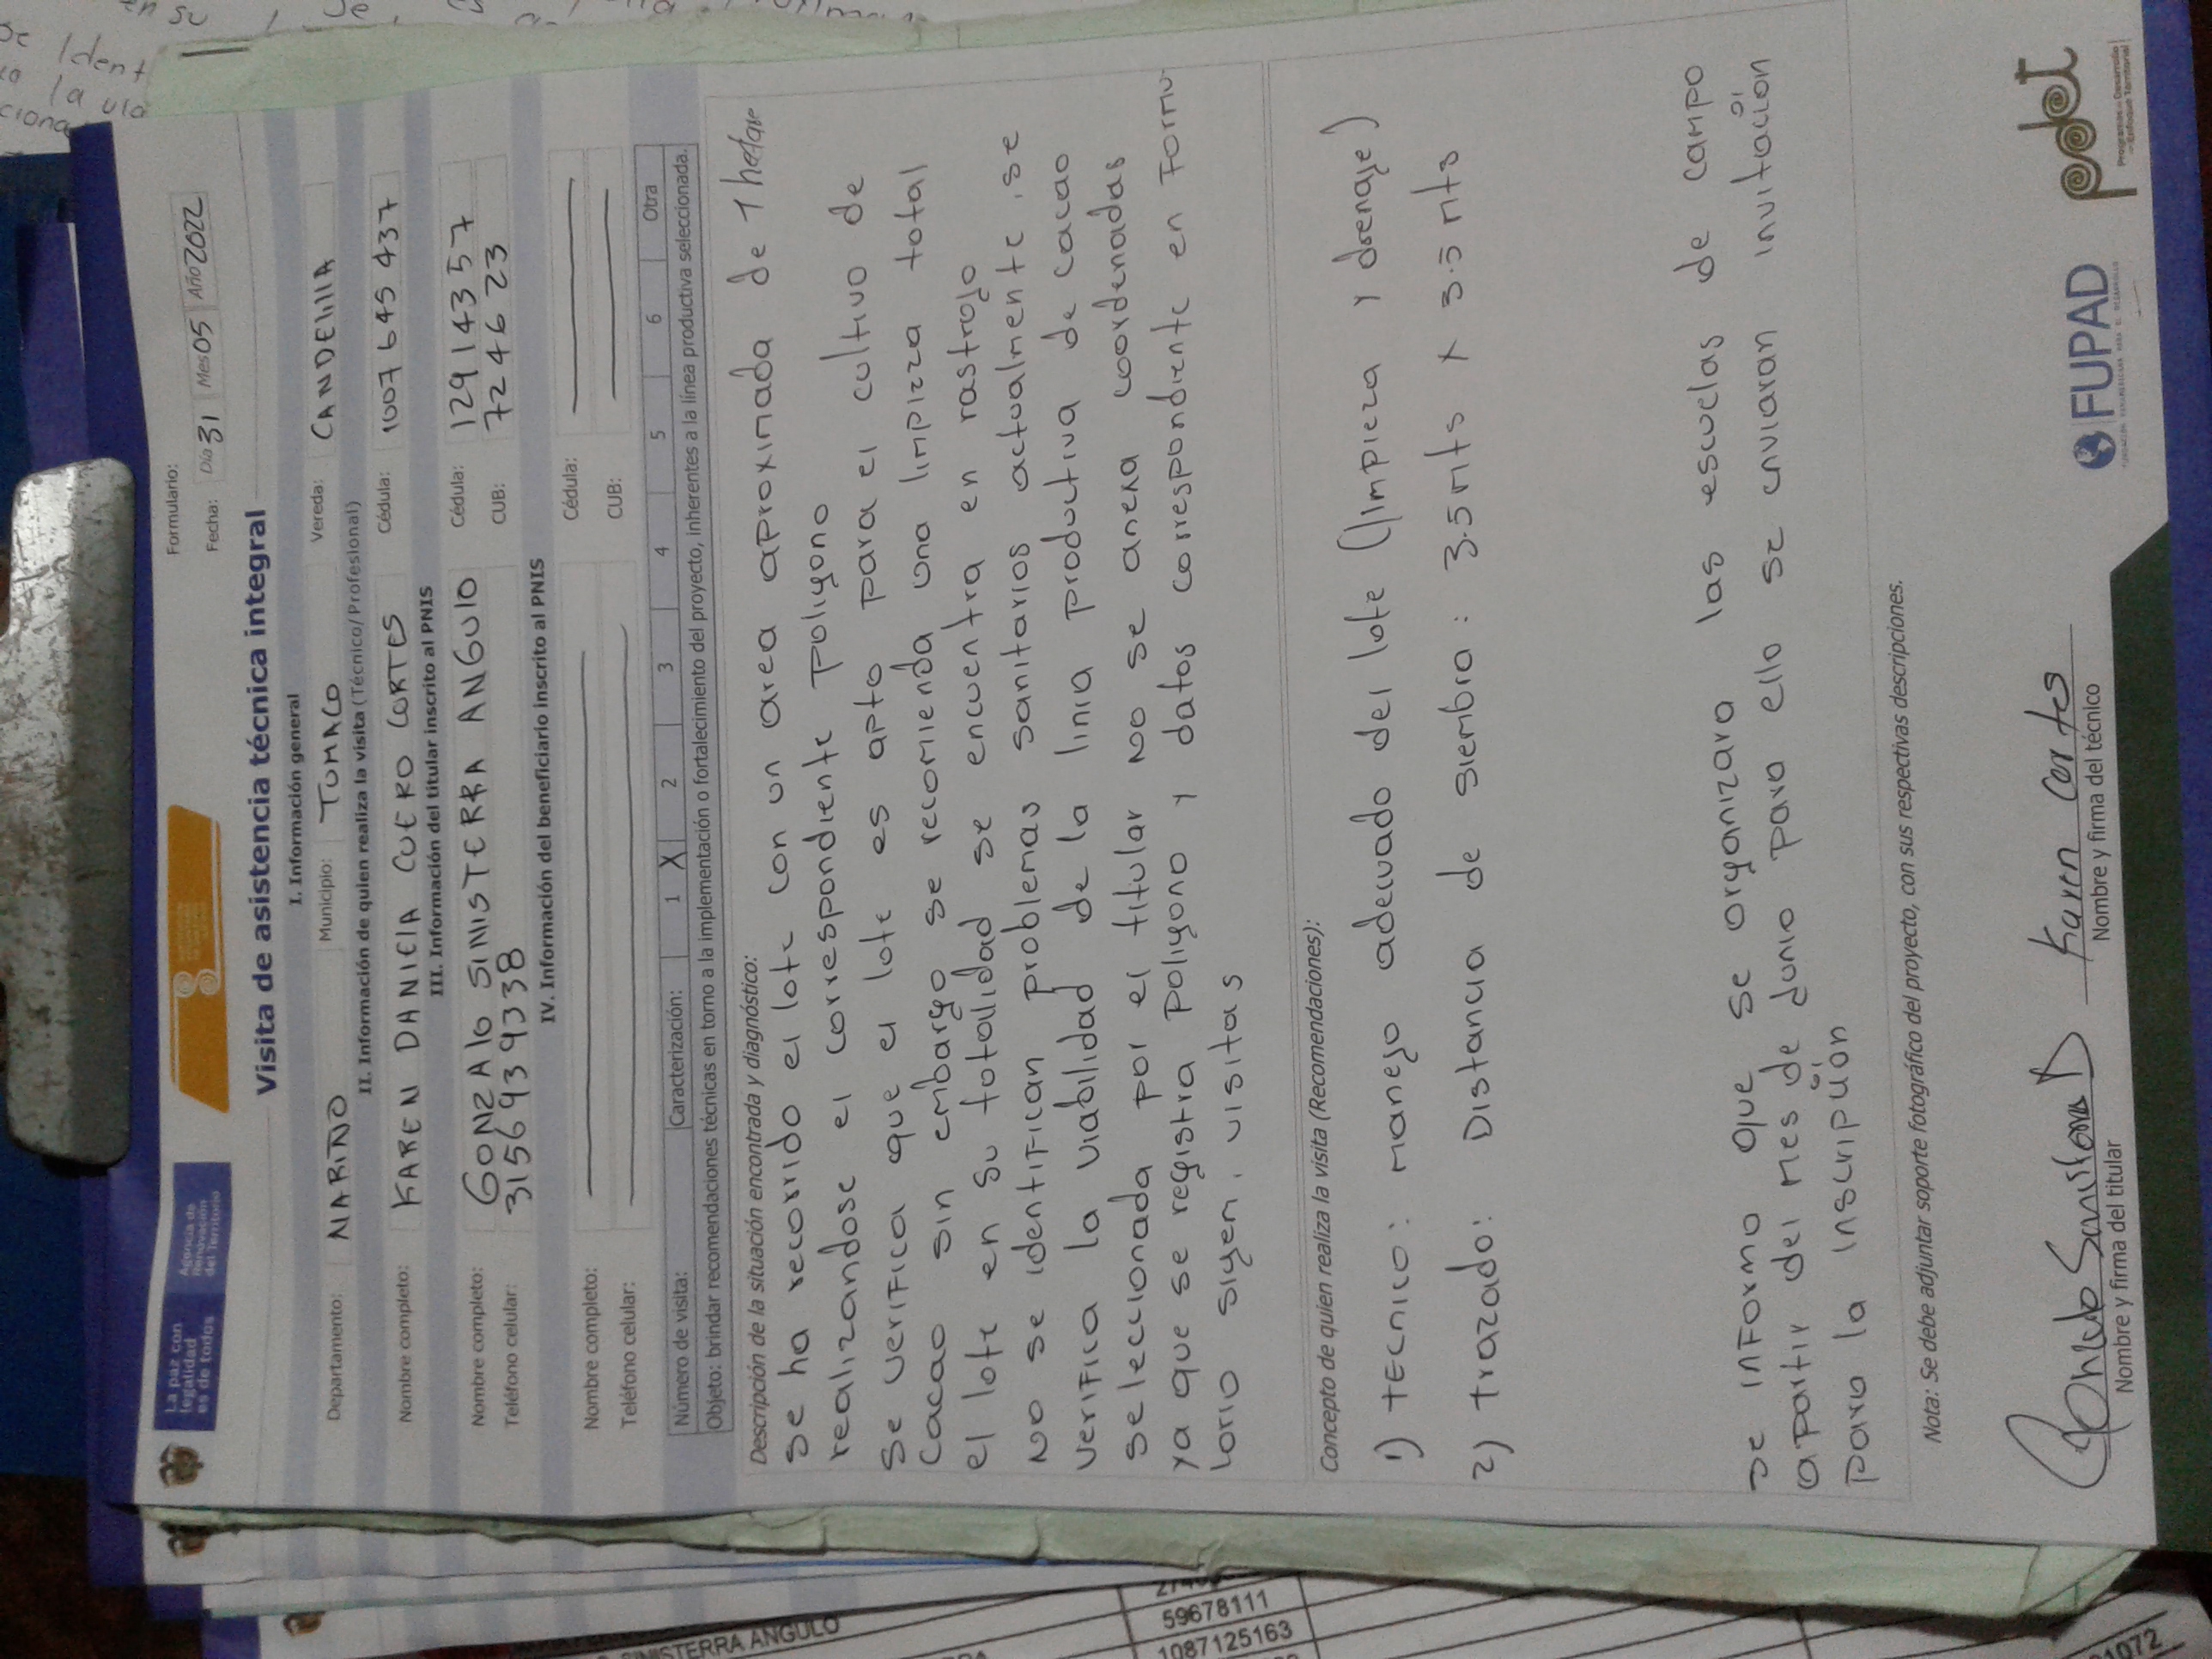 La paz con
legalidad
es de todos
Agencia de
Renovación
del Territorio
Formulario:
Fecha: Día 31 Mes 05 Año 2022
Visita de asistencia técnica integral
I. Información general
Departamento: NARIÑO Municipio: TUMACO Vereda: CANDELIllA
II. Información de quien realiza la visita (Técnico/Profesional)
Nombre completo: KAREN DANIElA CUERO CORTES Cédula: 1007645437
III. Información del titular inscrito al PNIS
Nombre completo: GONZAlO SINISTERRA ANGUlO Cédula: 12914357
Teléfono celular: 3156939338 CUB: 724623
IV. Información del beneficiario inscrito al PNIS
Nombre completo: Cédula:
Teléfono celular: CUB:
Número de visita: Caracterización: 1 X 2 3 4 5 6 Otra
Objeto: brindar recomendaciones técnicas en torno a la implementación o fortalecimiento del proyecto, inherentes a la línea productiva seleccionada.
Descripción de la situación encontrada y diagnóstico:
se ha recorrido el lote con un area aproximada de 1
realizandose el correspondiente poligono
se verifica que el lote es apto para el cultivo de
cacao sin embargo se recomienda una limpieza total
el lote en su totalidad se encuentra en rastrojo
No se identifican problemas sanitarios actualmente, se
verifica la viabilidad de la linia productiva de cacao
seleccionada por el titular No se anexa coordenadas
ya que se registra poligono y datos correspondiente en Formu-
lorio sigen, visitas
Concepto de quien realiza la visita (Recomendaciones):
1) tecnico: manejo adecuado del lote (limpieza y drenaje)
2) trazado: Distancia de siembra: 3.5 mts x 3.5 mts
se informo que se organizara las escuelas de campo
apartir del mes de Junio para ello se enviaran invitación
para la inscripción
Nota: Se debe adjuntar soporte fotográfico del proyecto, con sus respectivas descripciones.
Karen Cortes
Nombre y firma del titular
Nombre y firma del técnico
FUPAD
pdet
Programas de Desarrollo
con Enfoque Territorial
SINISTERRA ANGULO
59678111
1087125163
1072